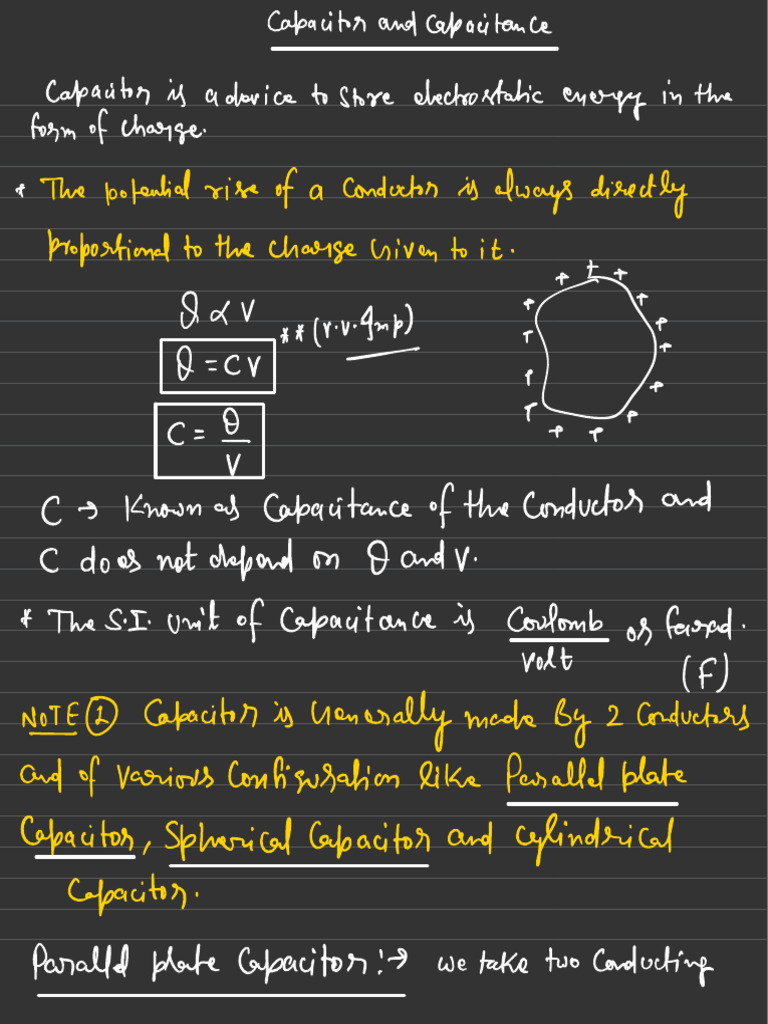 Capacitor and Capacitance
Capacitor is a device to store electrostatic energy in the
form of charge.
* The potential rise of a Conductor is always directly
proportional to the charge Given to it.
Q ∝ V
Q = CV ** (v.v. Imp)
C = Q/V
C → Known as Capacitance of the Conductor and
C does not depend on Q and V.
* The S.I. Unit of Capacitance is Coulomb/volt or farad.
(F)
NOTE ① Capacitor is Generally made By 2 Conductors
and of various Configuration like Parallel plate
Capacitor, Spherical Capacitor and cylindrical
Capacitor.
Parallel plate Capacitor:→ we take two Conducting